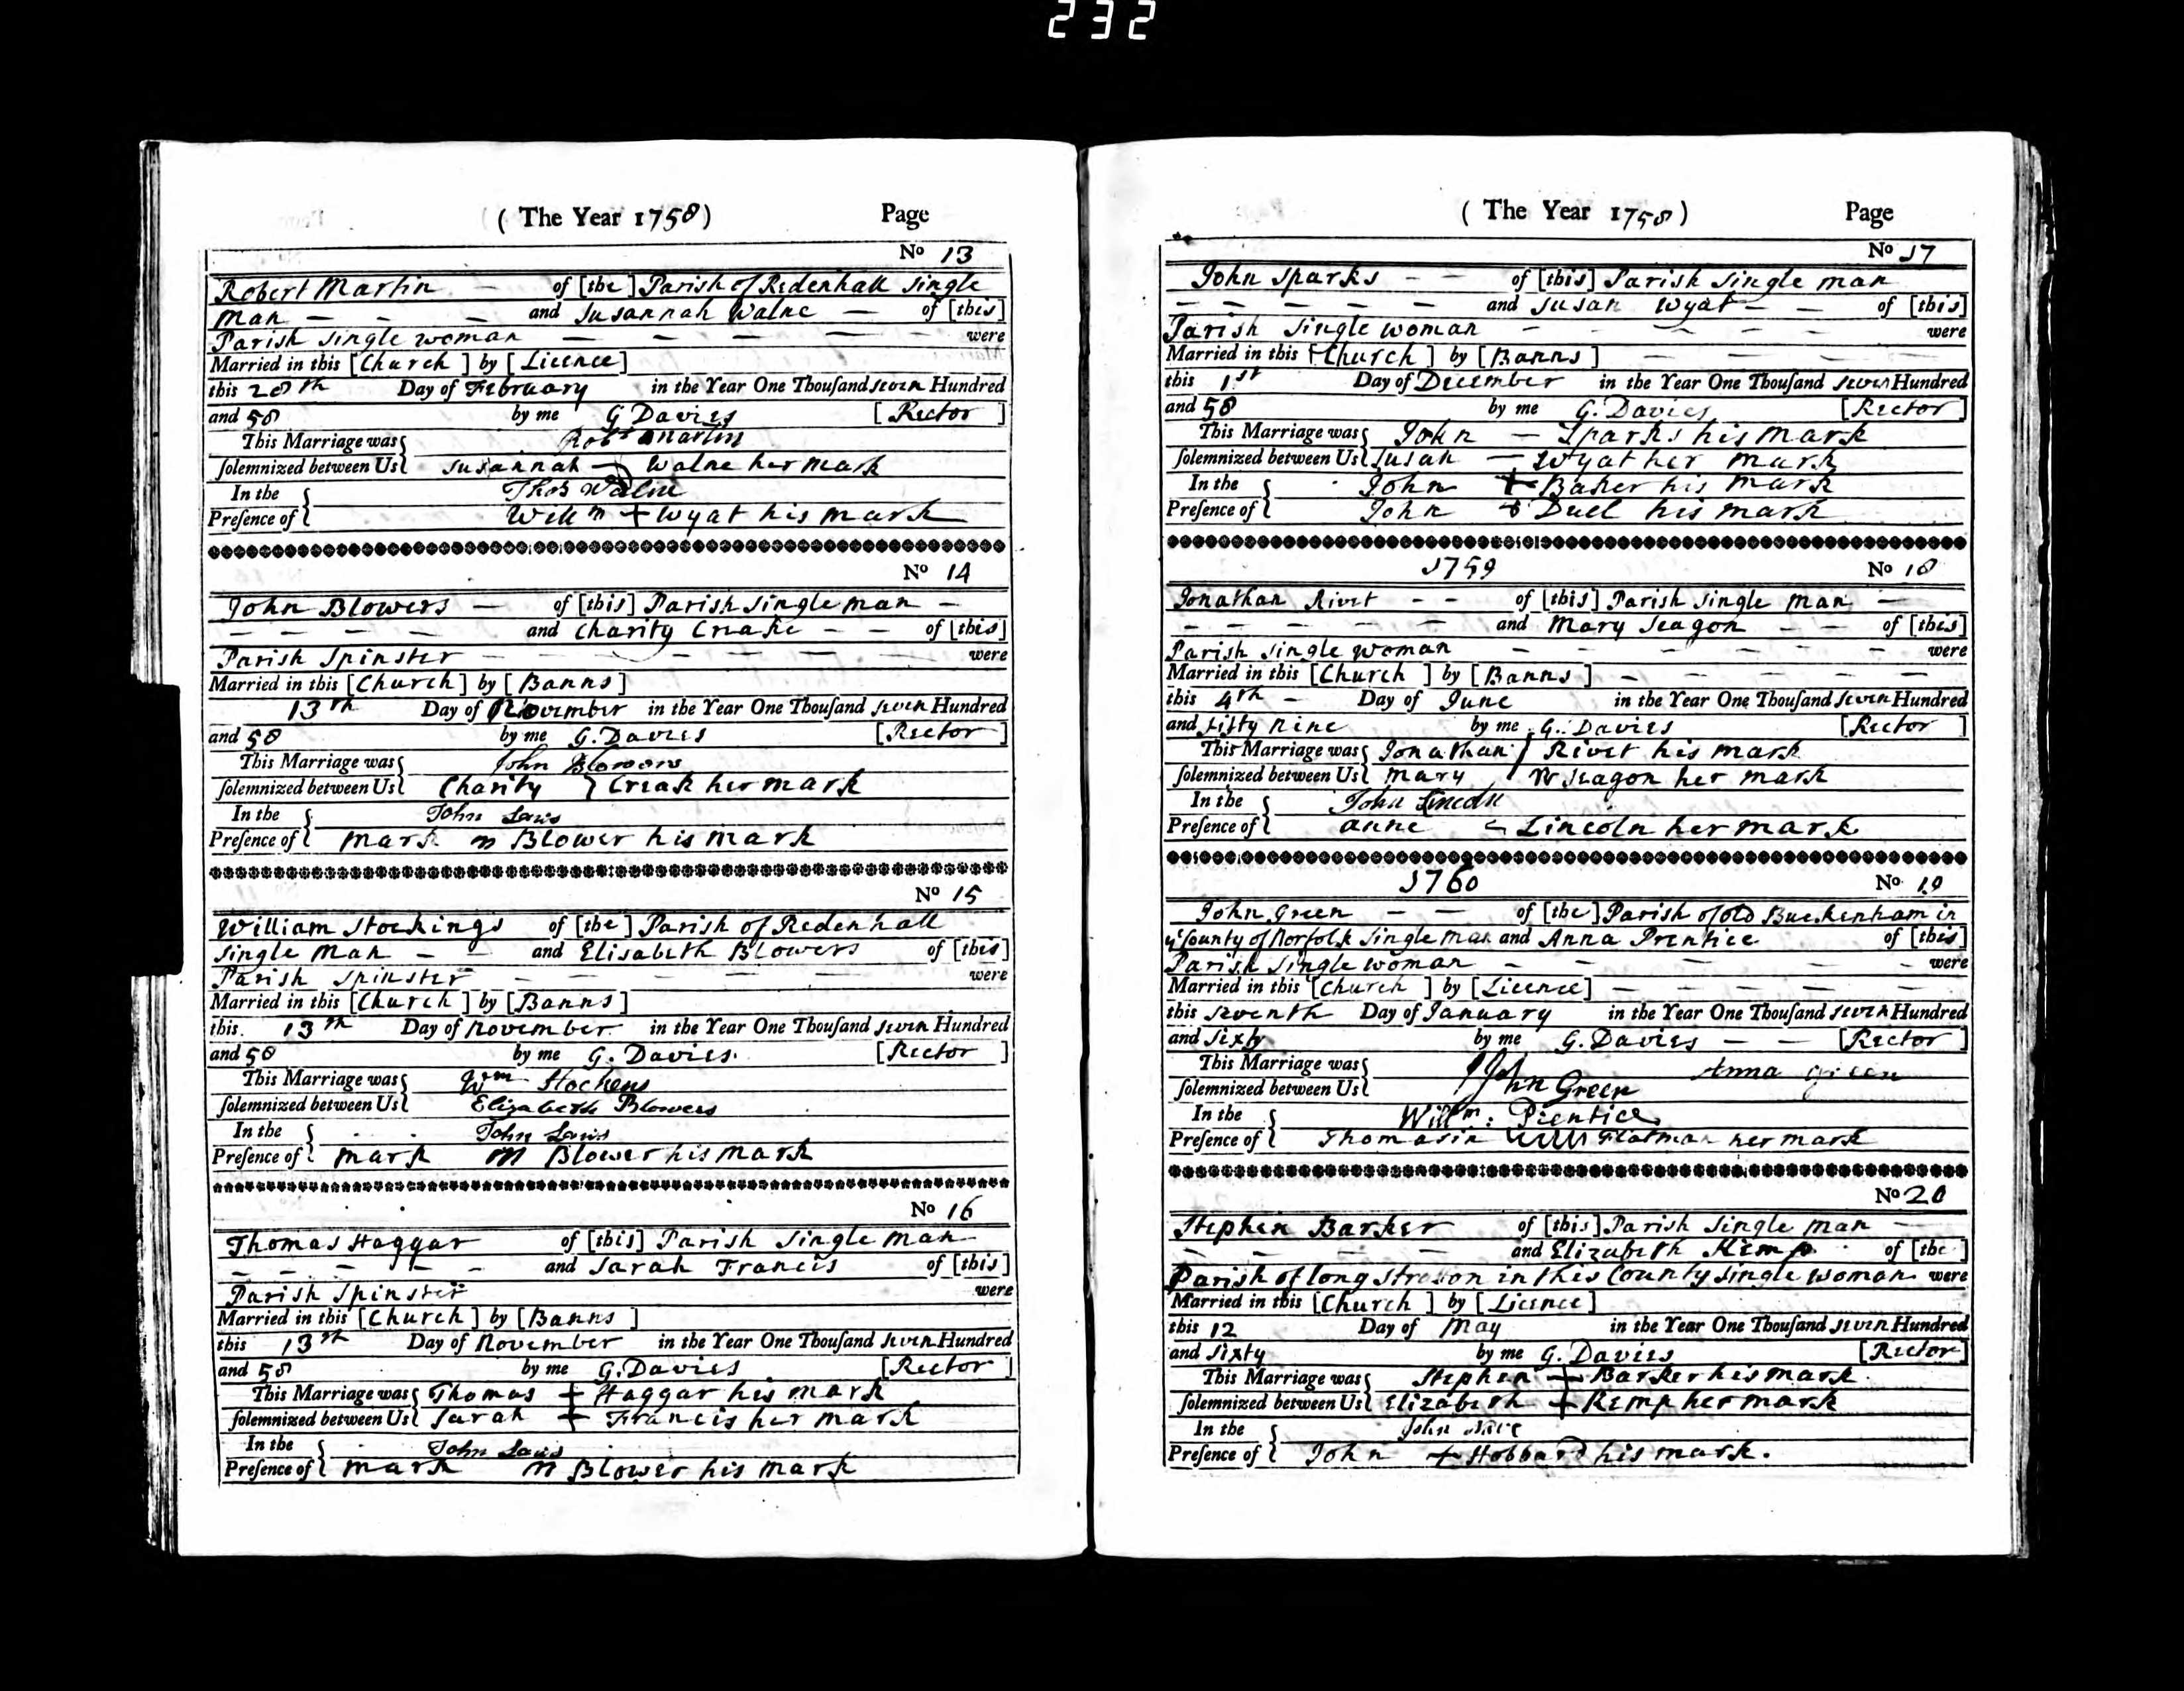 232
( The Year 1758) Page
No 13
Robert Martin - of [the] Parish of Redenhall single
man - - - and Susannah Walne - of [this]
Parish single woman - - - - were
Married in this [Church] by [Licence]
this 28th Day of February in the Year One Thouſand seven Hundred
and 58 by me G Davies [Rector]
This Marriage was Robt Martin
ſolemnized between Us Susannah Walne her mark
In the Thos Walne
Preſence of Willm + Wyat his mark
No 14
John Blowers - of [this] Parish single man -
- - - - and Charity Creake - - of [this]
Parish Spinster - - - - - - - were
Married in this [Church] by [Banns]
13th Day of November in the Year One Thouſand seven Hundred
and 58 by me G. Davies [Rector]
This Marriage was John Blowers
ſolemnized between Us Charity } Creak her mark
In the John Laws
Preſence of mark m Blower his mark
No 15
William Stockings of [the] Parish of Redenhall
single man - - and Elisabeth Blowers of [this]
Parish Spinster - - - - - - were
Married in this [Church] by [Banns]
this 13th Day of November in the Year One Thouſand seven Hundred
and 58 by me G. Davies [Rector]
This Marriage was Wm Stockens
ſolemnized between Us Elizabeth Blowers
In the John Laws
Preſence of mark m Blower his mark
No 16
Thomas Haggar of [this] Parish single man
- - - - - and Sarah Francis of [this]
Parish Spinster were
Married in this [Church] by [Banns]
this 13th Day of November in the Year One Thouſand seven Hundred
and 58 by me G. Davies [Rector]
This Marriage was Thomas + Haggar his mark
ſolemnized between Us Sarah + Francis her mark
In the John Laws
Preſence of mark m Blower his mark
( The Year 1758) Page
No 17
John Sparks - - of [this] Parish single man
- - - - - and Susan Wyat - - of [this]
Parish single woman - - - - - were
Married in this [Church] by [Banns] - - - -
this 1st Day of December in the Year One Thouſand seven Hundred
and 58 by me G. Davies [Rector]
This Marriage was John - Sparks his mark
ſolemnized between Us Susan - Wyat her mark
In the John + Baker his mark
Preſence of John + Duel his mark
1759 No 18
Jonathan Rivet - - of [this] Parish single man -
- - - - - and Mary Seagon - - of [this]
Parish single woman - - - - - were
Married in this [Church] by [Banns] - - - - -
this 4th - Day of June in the Year One Thouſand seven Hundred
and fifty nine by me G. Davies [Rector]
This Marriage was Jonathan / Rivet his mark
ſolemnized between Us Mary Seagon her mark
In the John
Preſence of Anne Lincoln her mark
1760 No 19
John Green - - of [the] Parish of old Buckenham in
ye County of Norfolk single man and Anna Prentice of [this]
Parish single woman - - - - - were
Married in this [Church] by [Licence] - - - - -
this seventh Day of January in the Year One Thouſand seven Hundred
and sixty by me G. Davies - - [Rector]
This Marriage was John Green Anna Green
ſolemnized between Us
In the Willm: Prentice
Preſence of Thomasin Flatman her mark
No 20
Stephen Barker of [this] Parish single man -
- - - - and Elizabeth Kemp of [the]
Parish of long Stratton in this County single woman were
Married in this [Church] by [Licence]
this 12 Day of May in the Year One Thouſand seven Hundred
and sixty by me G. Davies [Rector]
This Marriage was Stephen + Barker his mark
ſolemnized between Us Elizabeth + Kemp her mark
In the John
Preſence of John + Hobbard his mark.